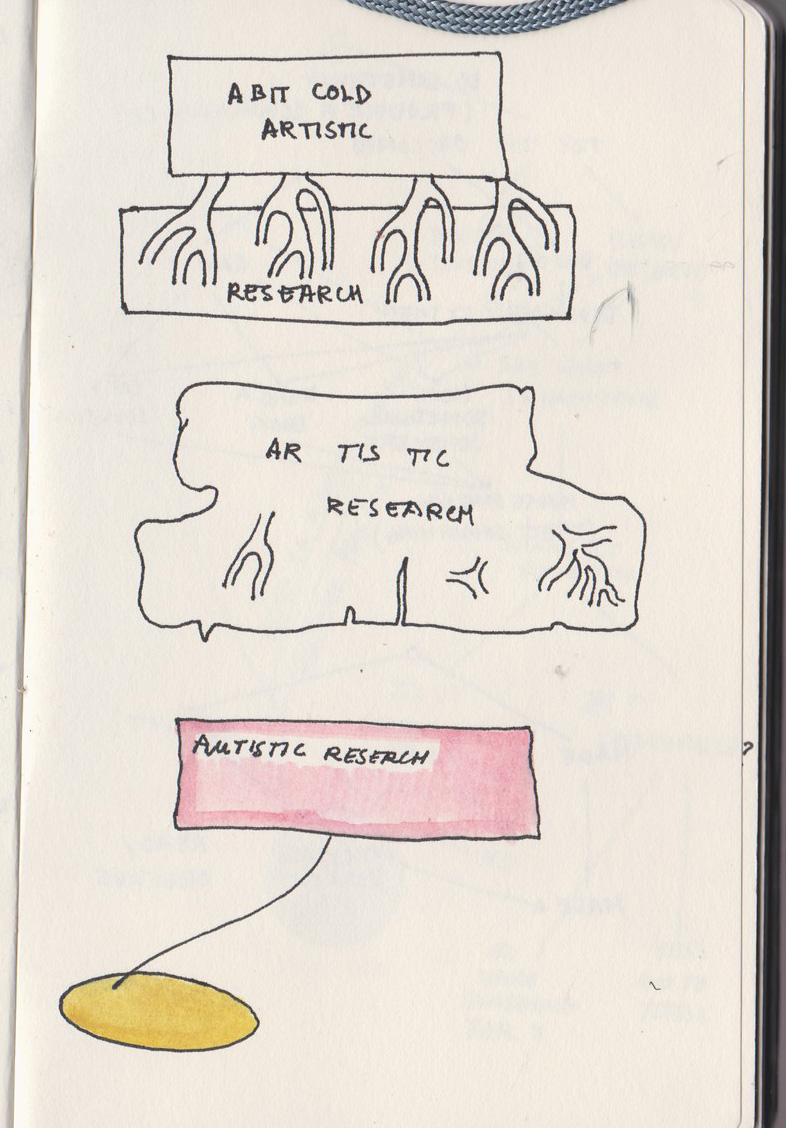 A BIT COLD
ARTISTIC
RESEARCH
AR TIS TIC
RESEARCH
AUTISTIC RESERCH